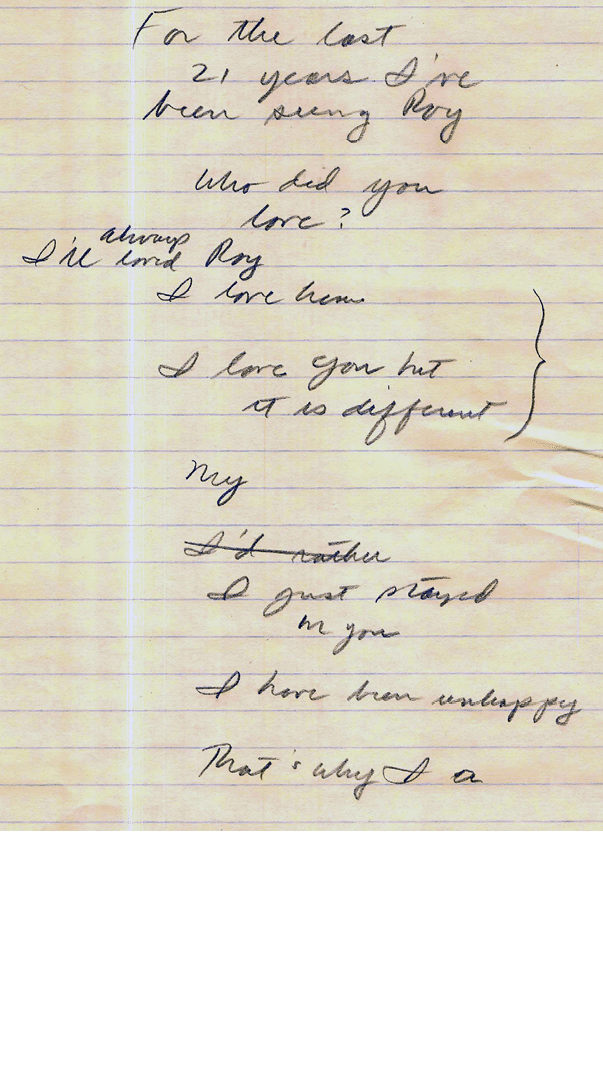 For the last
21 years I've
been seeing Roy
Who did you
love?
always
I'll loved Roy
I love him
I love you but
it is different
My
I'd rather
I just stayed
in you
I have been unhappy
That's why I a